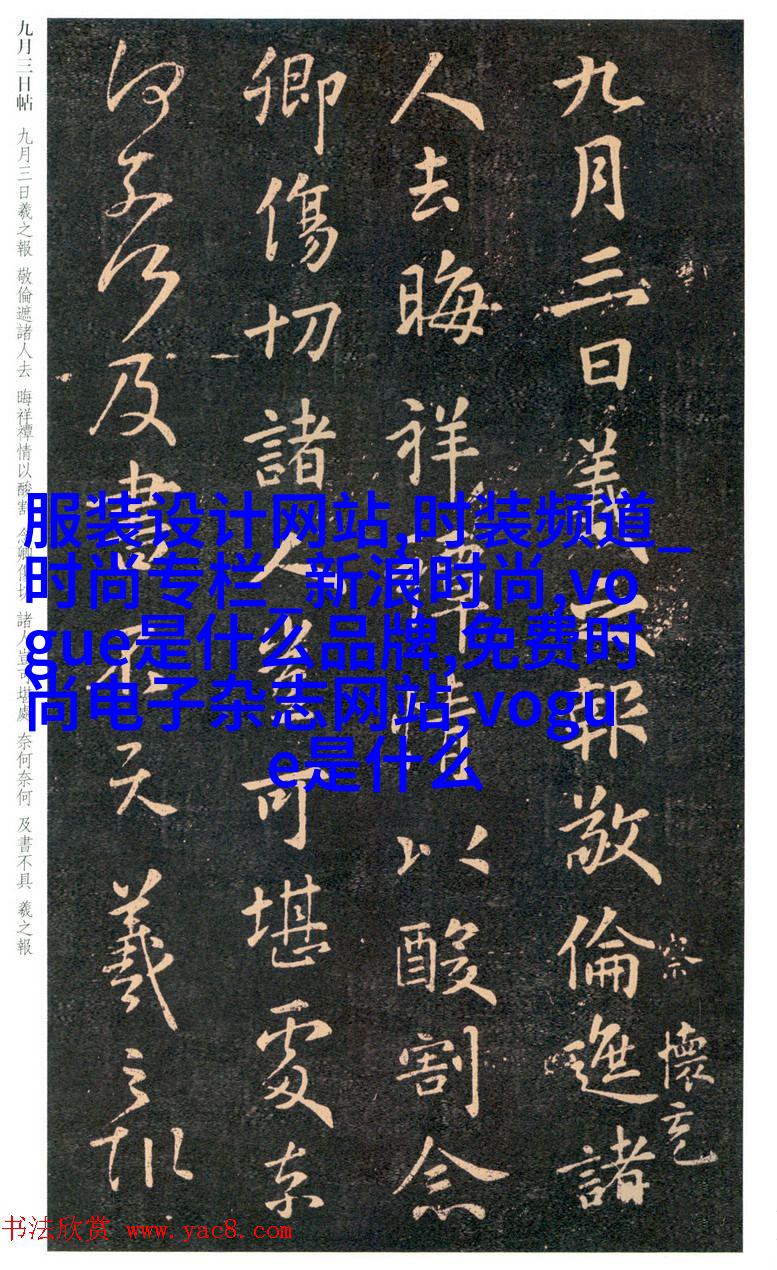 九月三日羲之報敬倫遮諸
察
懷充
人去晦祥禫情以酸割念
卿傷切諸人豈可堪處奈
何奈何及書不具羲之報
九月三日帖 九月三日羲之報 敬倫遮諸人去 晦祥禫情以酸割 念卿傷切 諸人豈可堪處 奈何奈何 及書不具 羲之報
服装设计网站,时装频道_
时尚专栏_新浪时尚,vo
gue是什么品牌,免费时
尚电子杂志网站,vogu
e是什么
书法欣赏 www.yac8.com